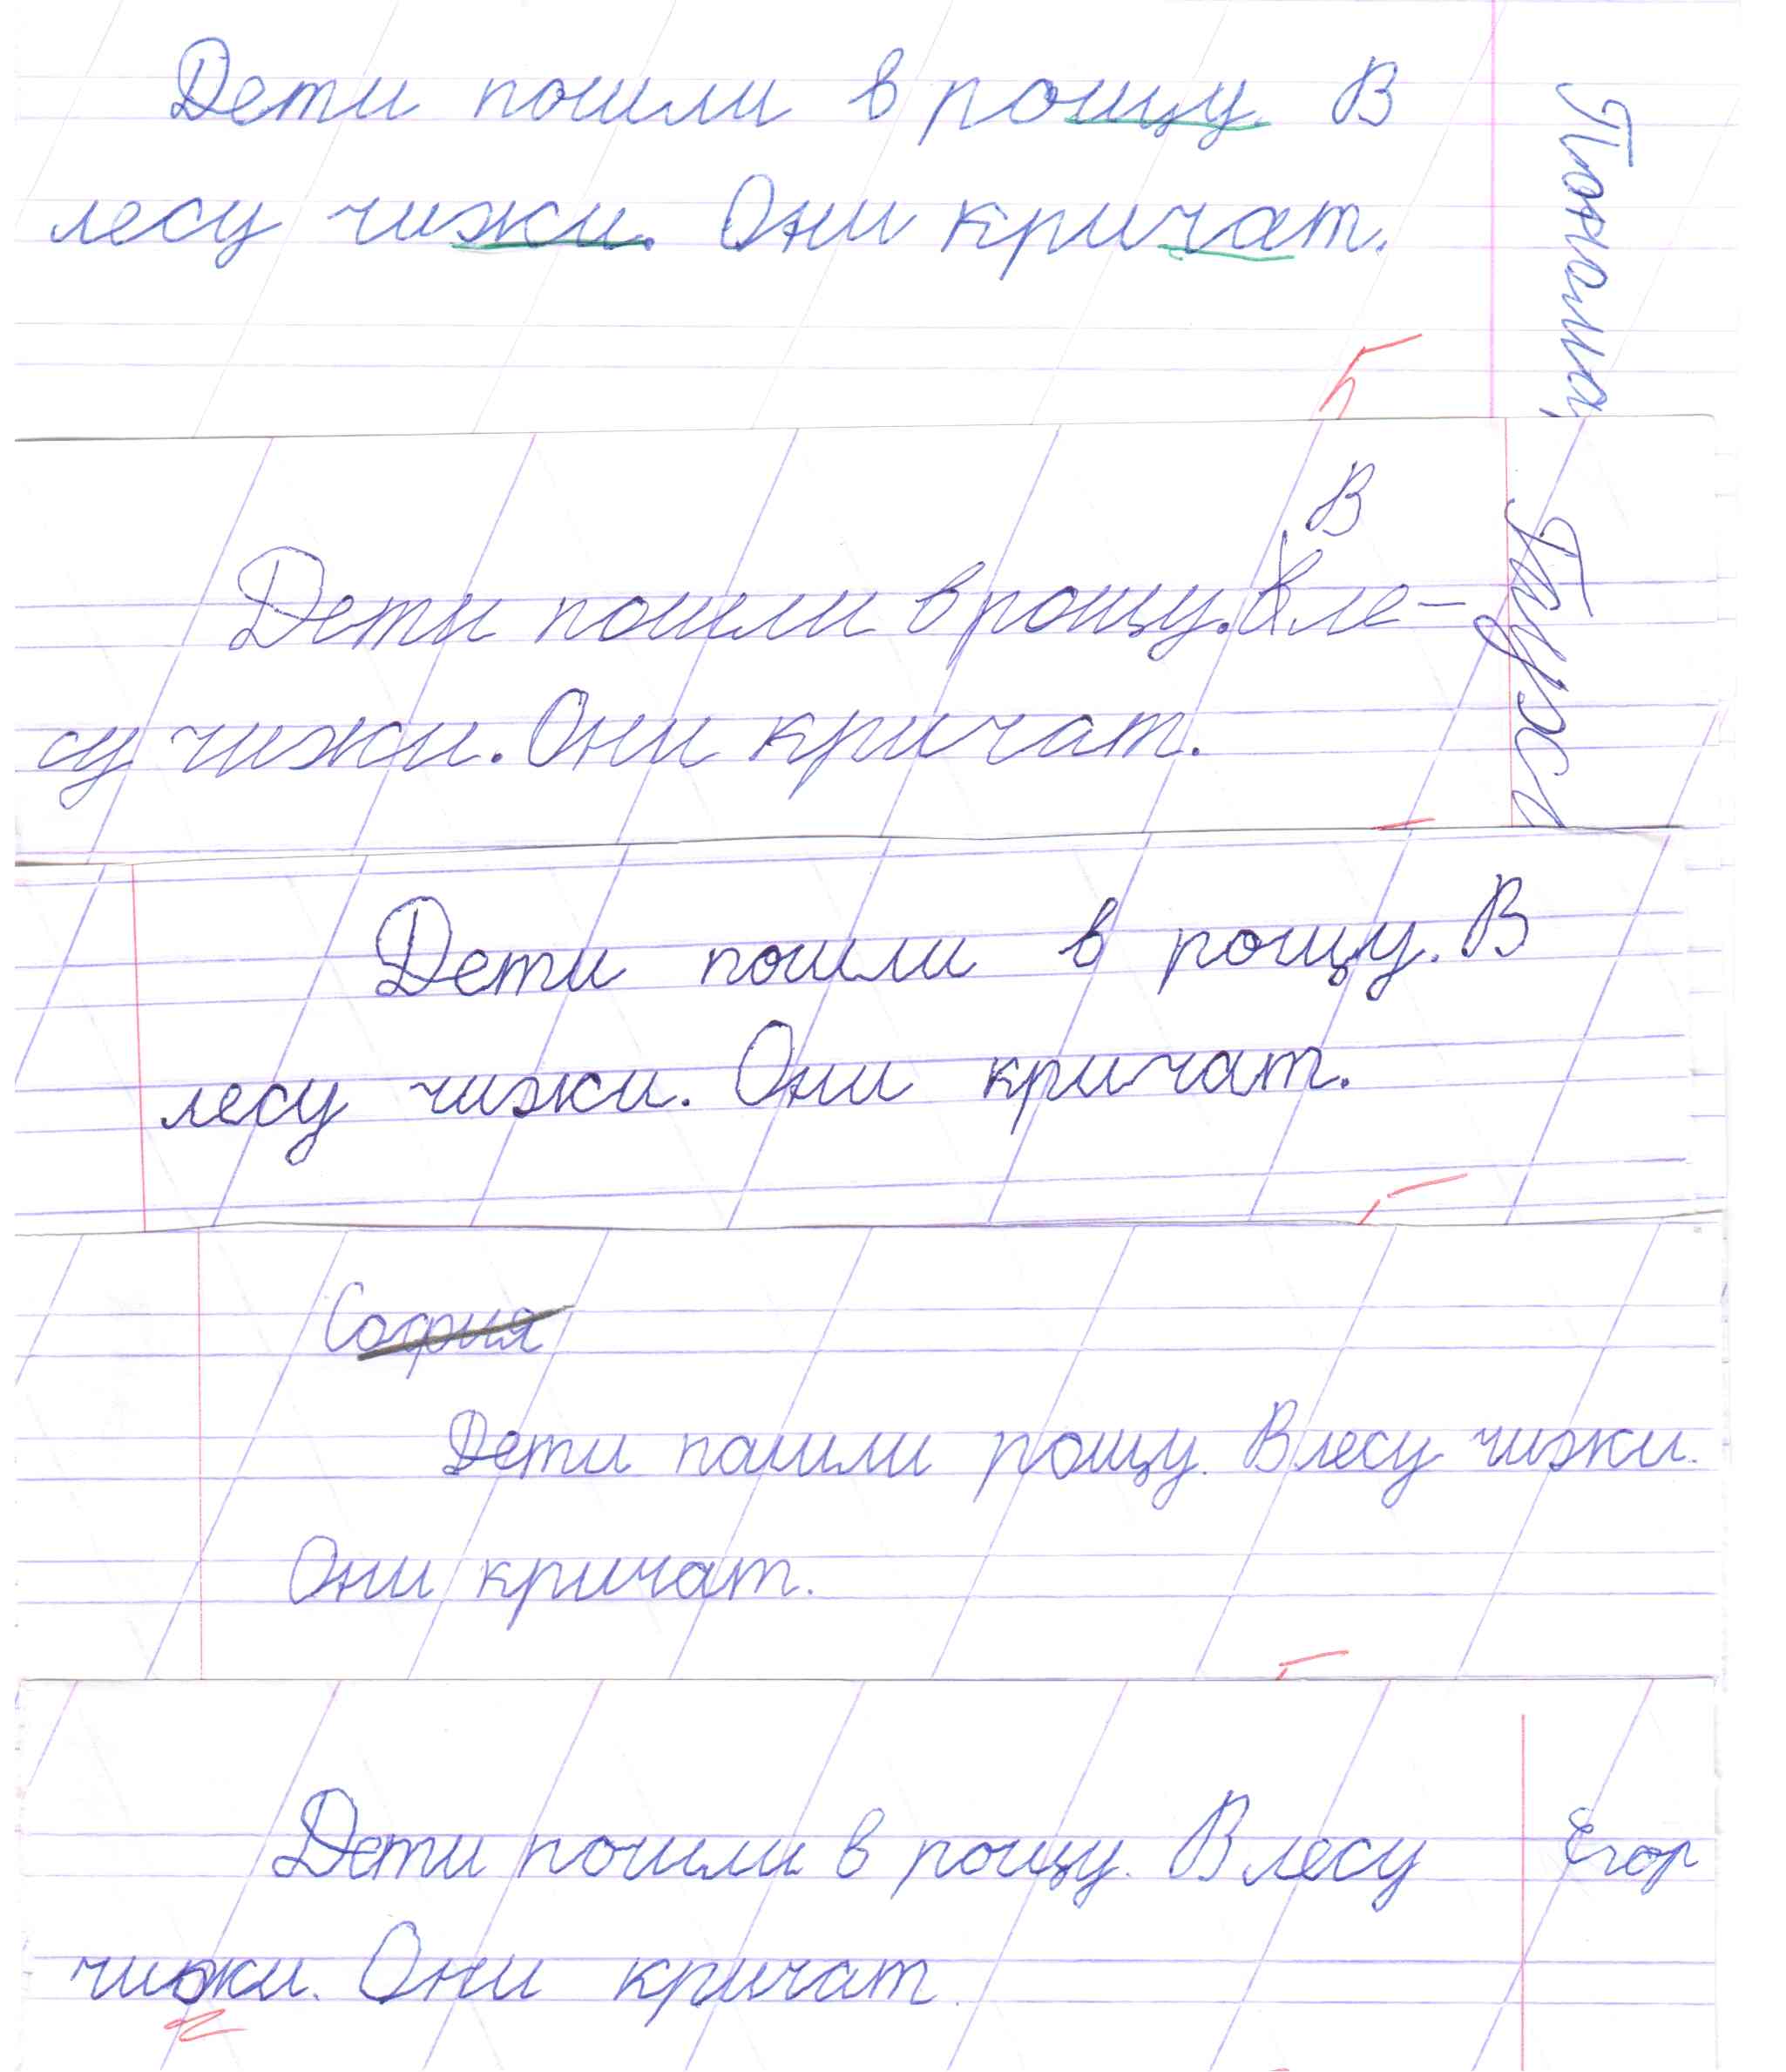 Дети пошли в рощу. В
лесу чижи. Они кричат.
5
В
Дети пошли в рощу. в ле-
су чижи. Они кричат.
Дети пошли в рощу. В
лесу чижи. Они кричат.
София
Дети пашли рощу. В лесу чижи.
Они кричат.
Дети пошли в рощу. В лесу
Егор
чижи. Они кричат.